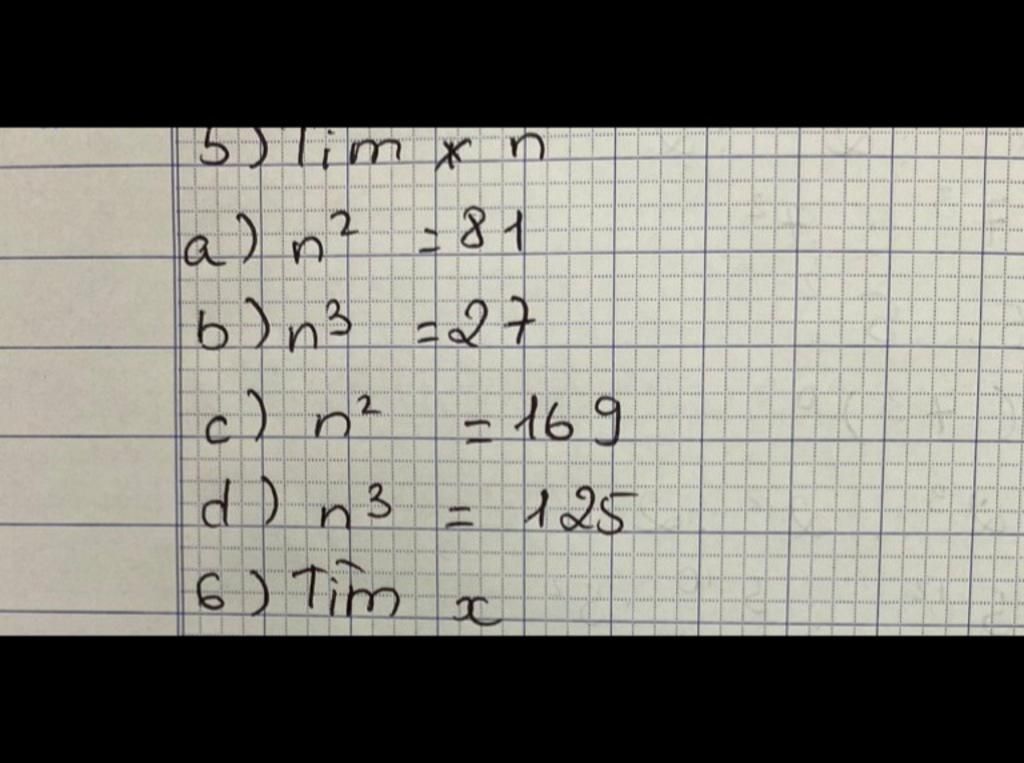 5) Tìm x n
a) n² = 81
b) n³ = 27
c) n² = 169
d) n³ = 125
6) Tìm x